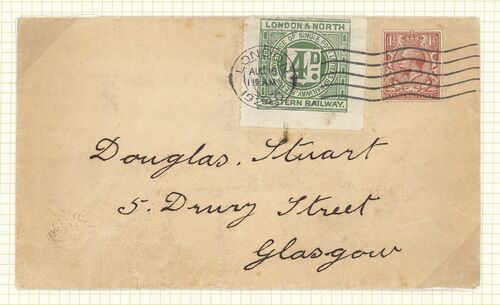 LONDON & NORTH
4D
EASTERN RAILWAY.
1½ 1½
LONDON
AUG
AM
Douglas. Stuart
5. Drury Street
Glasgow